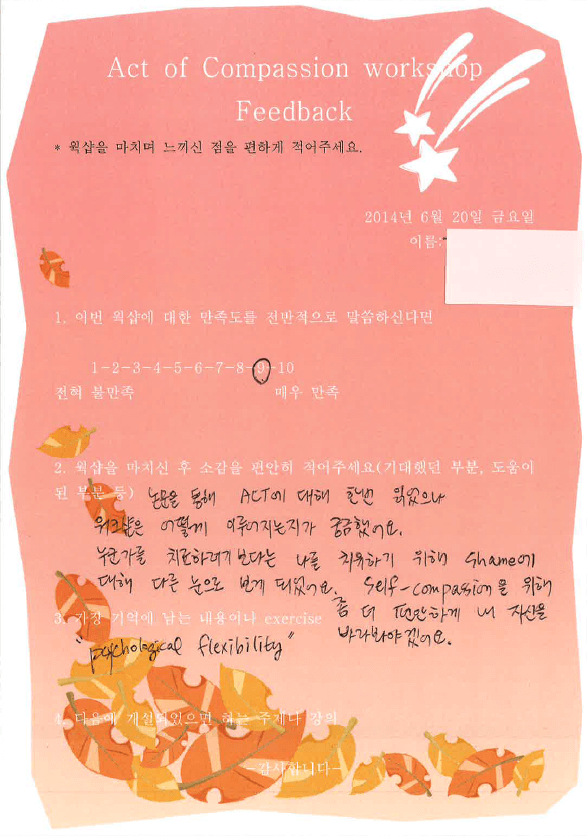 Act of Compassion workshop
Feedback
* 웍샵을 마치며 느끼신 점을 편하게 적어주세요.
2014년 6월 20일 금요일
이름:
1. 이번 웍샵에 대한 만족도를 전반적으로 말씀하신다면
1-2-3-4-5-6-7-8-9-10
전혀 불만족 매우 만족
2. 웍샵을 마치신 후 소감을 편안히 적어주세요(기대했던 부분, 도움이
된 부분 등) 논문을 통해 ACT에 대해 한번 읽었으나
워크샵은 어떻게 이루어지는지가 궁금했어요.
누군가를 치료하려기 보다는 나를 치유하기 위해 shame에
대해 다른 눈으로 보게 되었어요. self-compassion을 위해
좀 더 편안하게 내 자신을
바라봐야겠어요.
3. 가장 기억에 남는 내용이나 exercise
"psychological flexibility"
4. 다음에 개설되었으면 하는 주제나 강의
-감사합니다-